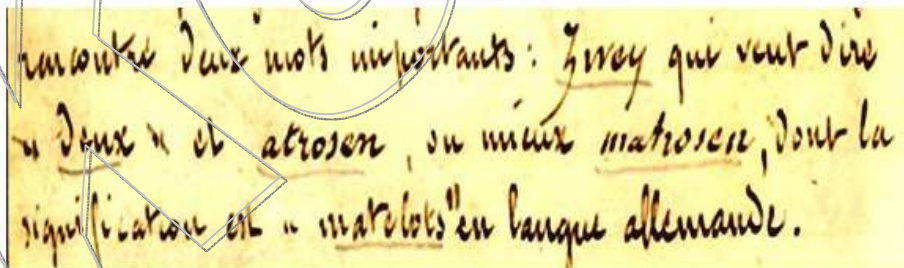 rencontré deux mots importants : Zwey qui veut dire
« deux » et atrosen, ou mieux matrosen, dont la
signification est « matelots" en langue allemande.